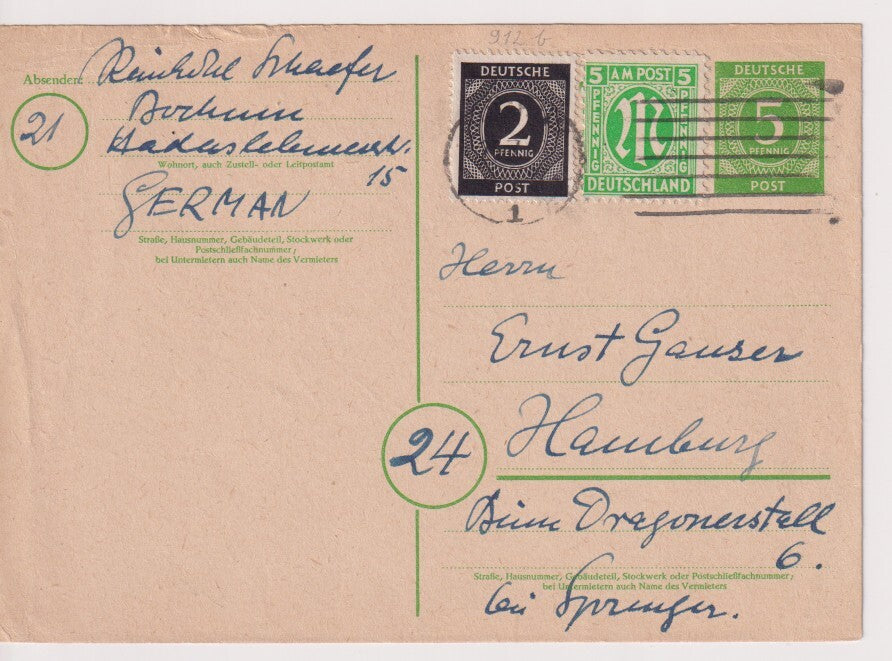 912 b
Absender: Reinhold Schaefer
21
Bochum
Haderslebenerstr.
Wohnort, auch Zustell- oder Leitpostamt
15
GERMAN
Straße, Hausnummer, Gebäudeteil, Stockwerk oder
Postschließfachnummer;
bei Untermietern auch Name des Vermieters
DEUTSCHE
2
PFENNIG
POST
5 AM POST 5
PFENNIG
M
PFENNIG
DEUTSCHLAND
DEUTSCHE
5
PFENNIG
POST
1
Herrn
Ernst Gauser
24
Hamburg
Beim Dragonerstall
6.
Straße, Hausnummer, Gebäudeteil, Stockwerk oder Postschließfachnummer;
bei Untermietern auch Name des Vermieters
bei Sprenger.